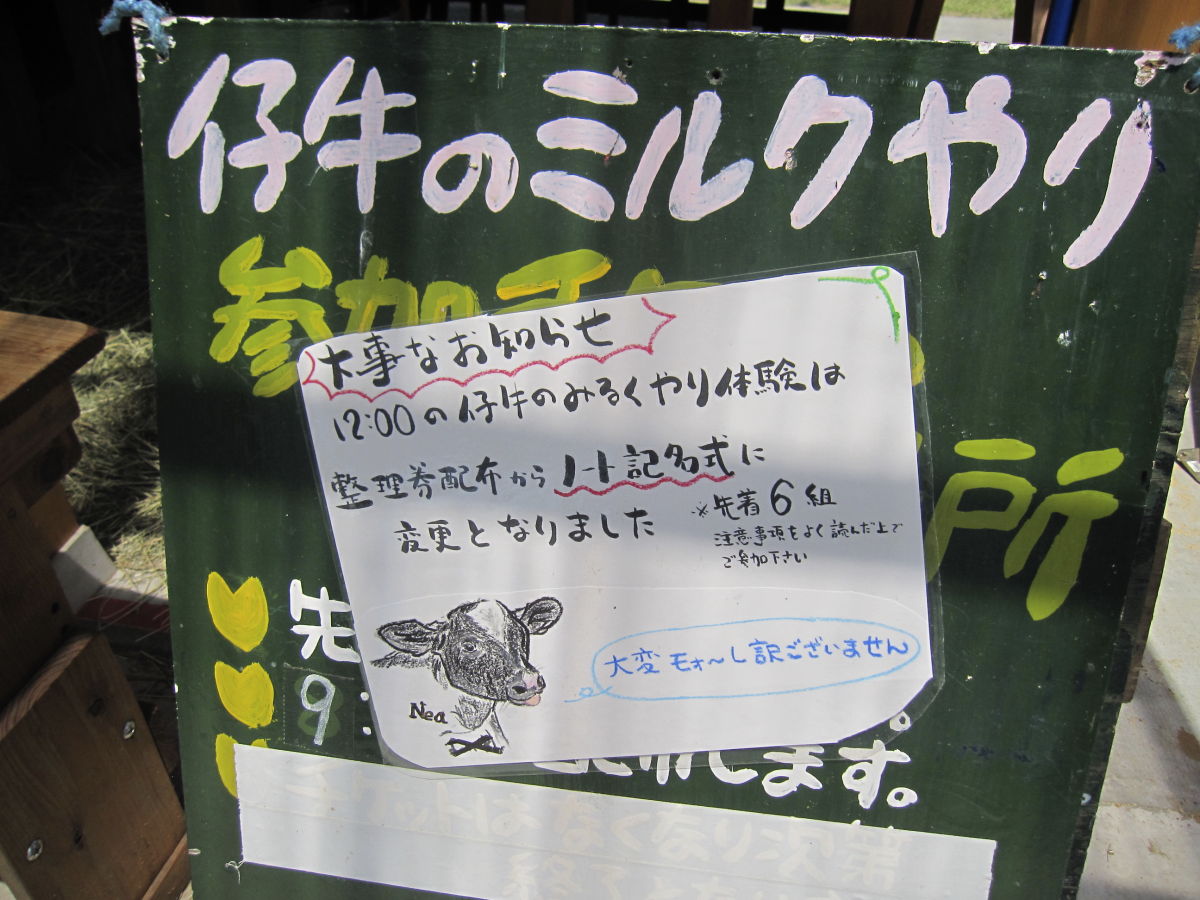 仔牛のミルクやり
参加
所
大事なお知らせ
12:00の仔牛のみるくやり体験は
整理券配布からノート記名式に
変更となりました
※先着6組
注意事項をよく読んだ上で
ご参加下さい
大変モォ〜し訳ございません
Nea
先
9:
します。
チケットはなくなり次第
終了と